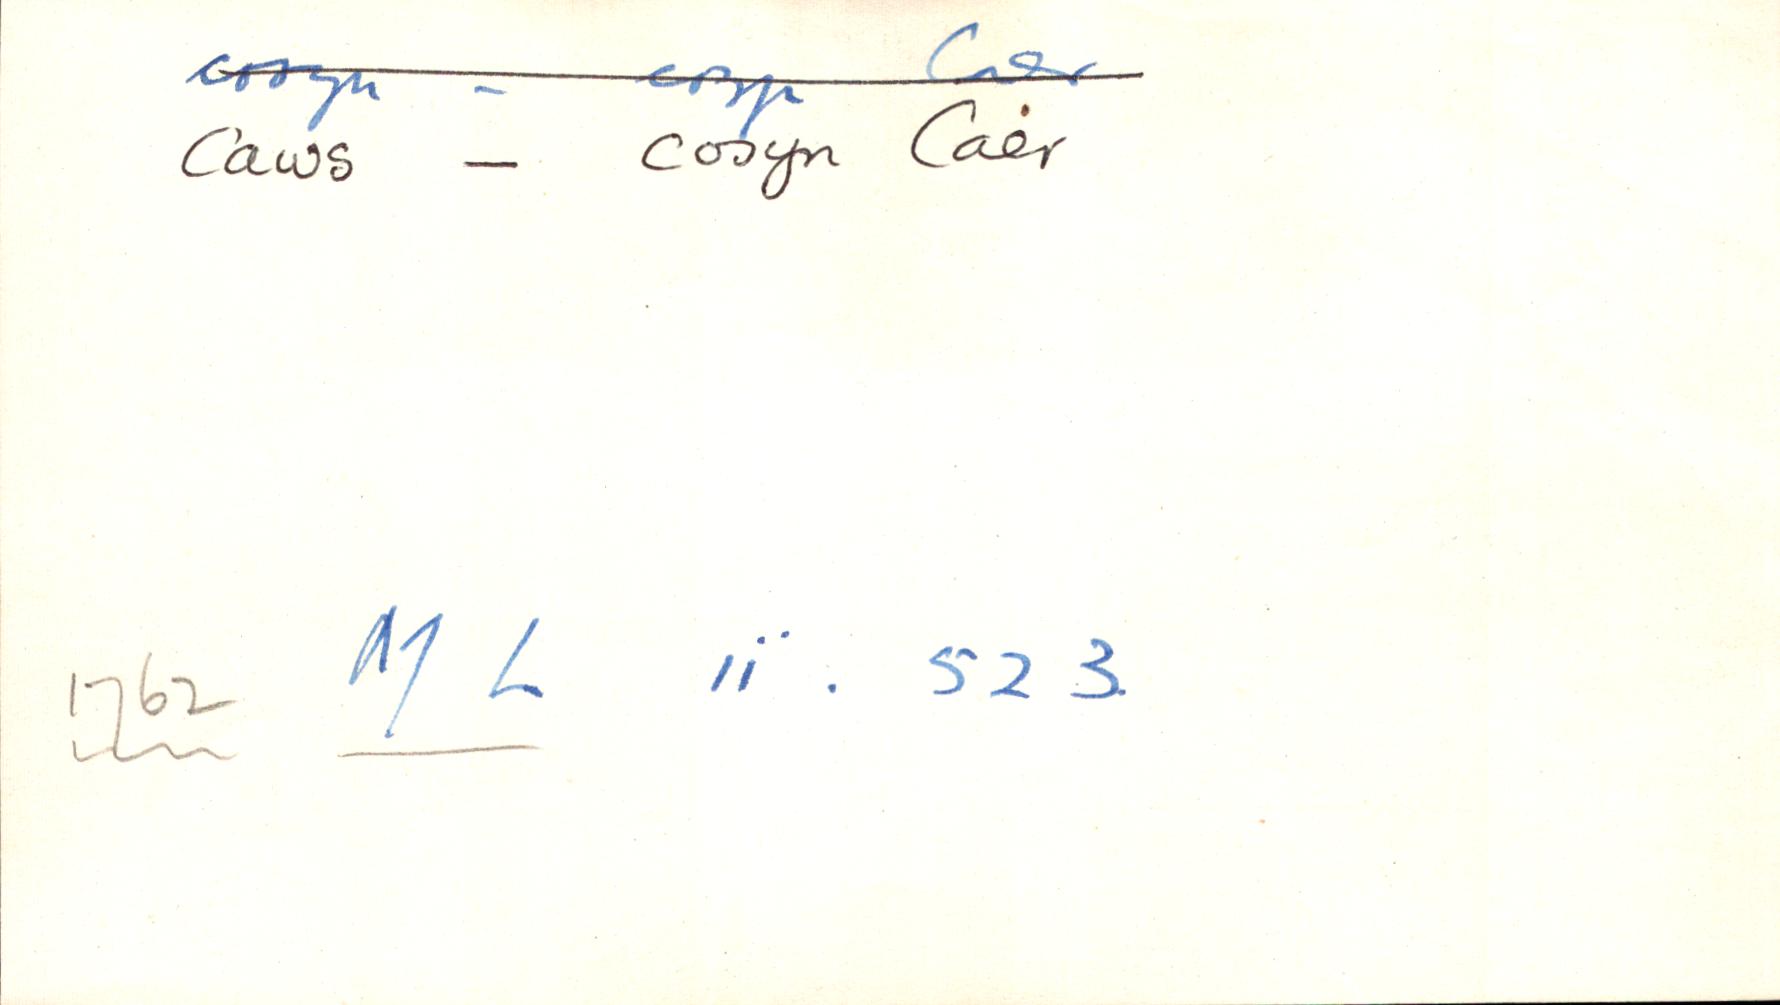 cosyn - cosyn Caer
Caws — cosyn Caer
1762 ML ii. 523